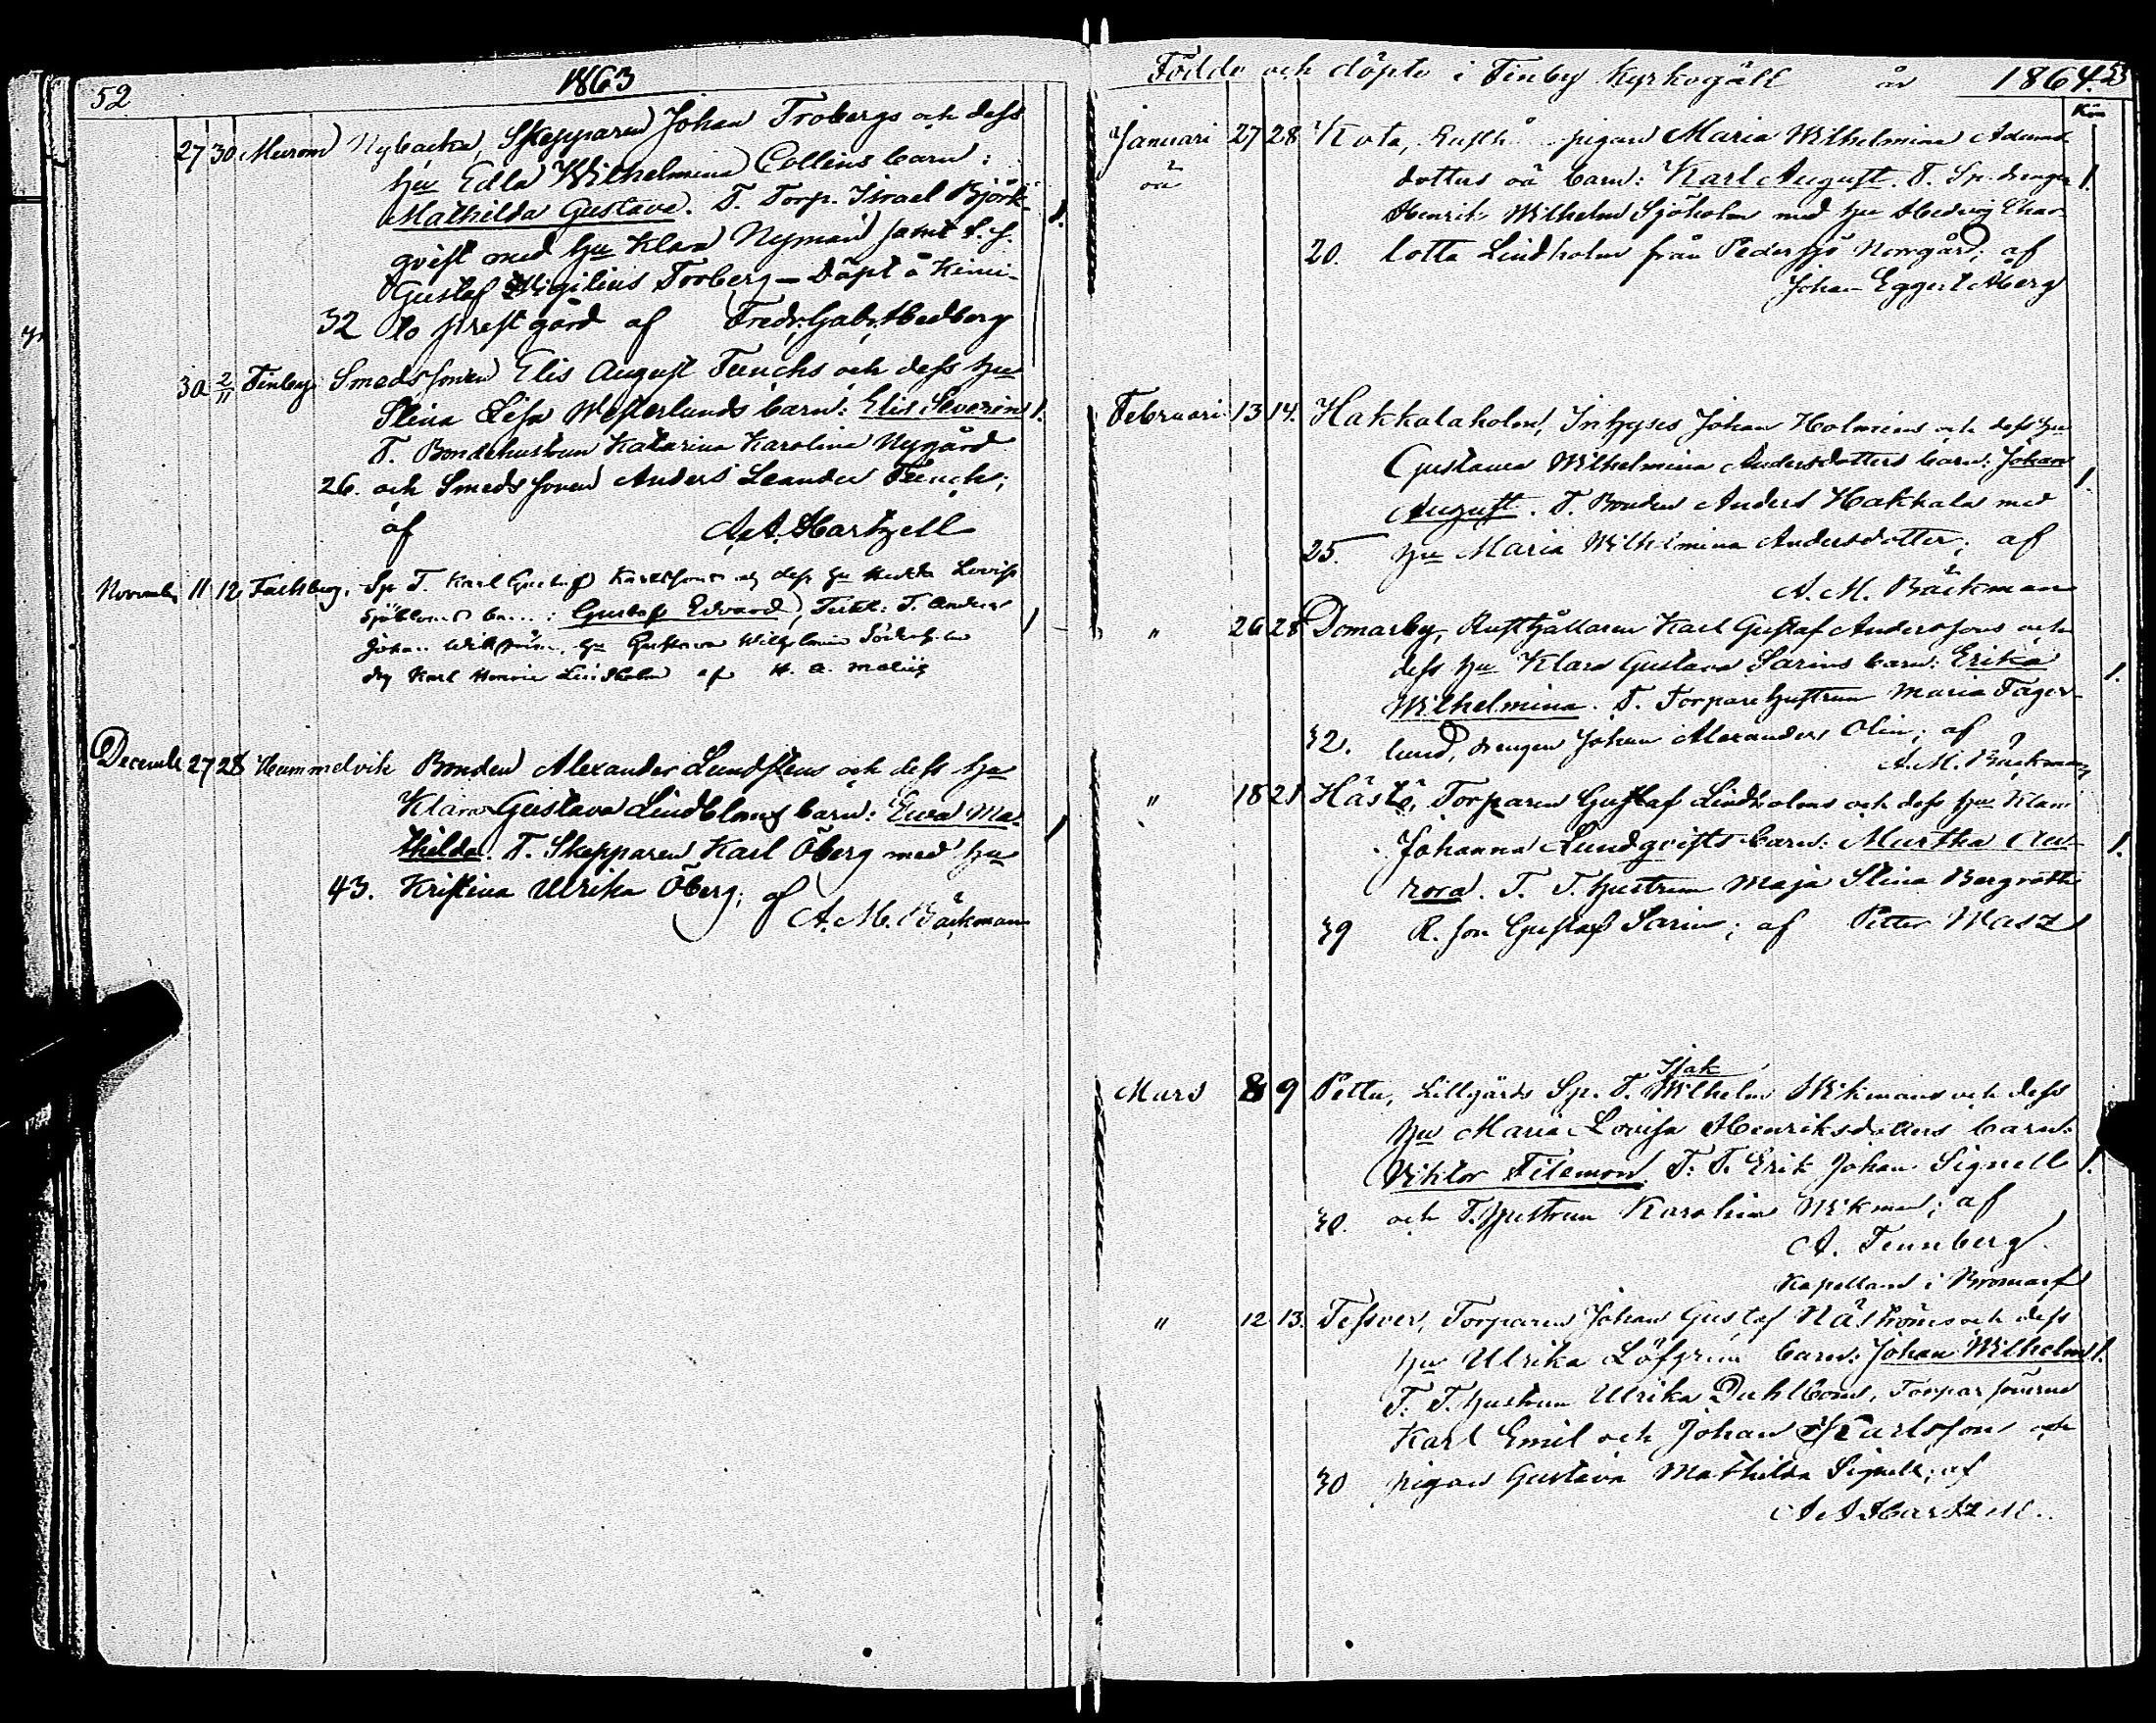 52
1863
27 30 Murom Nybacka, Skepparen Johan Trobergs och dess
hu Edla Wilhelmina Collins barn:
Mathilda Gustava. T. Torp. Israel Björk-
qvist med hu Klara Nyman samt S. s.
Gustaf Wigilius Troberg – Döpt å Kimi-
32 to prestgård af Fredr. Gab. Hedberg
30 2/11 Finby Smedssonen Elis August Funchs och dess hu
Stina Lisa Westerlunds barn: Elis Severin 1.
T. Bondehustrun Katarina Karolina Nygård
26. och Smedssonen Anders Leander Funck;
af A. A. Hartzell
November 11 12 Sp T. Karl Gustaf Karlssons och dess hu Hedda Lovisa
Gustaf Edvard, Test: T. Anders
Johan Wikström, hu Gustava Wilhelmina
drg Karl Henric Lindholm af H. A. Malin
December 27 28 Hummelvik Bonden Alexander Lundstens och dess hu
Klara Gustava Lindbloms barn: Ewa Ma-
thilda. T. Skepparen Karl Öberg med hu
43. Kristina Ulrika Öberg; af
A. M. Bäckman
Födde och döpte i Finby Kyrkogäll år 1864. 53
Kön
Januari 27 28 Kota, Rusth. pigan Maria Wilhelmina Adams-
oä dotters oä barn: Karl August. T. Sp. drengen 1.
Henrik Wilhelm Sjöholm med hu Hedvig Char-
20. lotta Lindholm från Pedersjö Norrgård; af
Johan Eggert Åberg
Februari 13 14. Hakkalaholm, Inhyses Johan Holmens och dess hu
Gustava Wilhelmina Andersdotters barn: Johan
August. T. Bonden Anders Hakkala med 1.
25. hu Maria Wilhelmina Andersdotter; af
A. M. Bäckman
" 26 28 Domarby, Rusthållaren Karl Gustaf Anderssons och
dess hu Klara Gustava Sarins barn: Erika
Wilhelmina. T. Torparehustrun Maria Fager- 1.
32. lund, drengen Johan Alexander Olin; af
A. M. Bäckman
" 18 21 Hästö, Torparen Gustaf Lindholms och dess hu Klara
Johanna Lundqvists barn: Martha Au-
rora. T. T. hustrun Maja Stina Bergroth 1.
39 R. son Gustaf Sarin; af Petter Masz
Isak
Mars 8 9 Pettu, Lillgårds Sp. T. Wilhelm Wikmans och dess
hu Maria Lovisa Henriksdotters barn:
Viktor Filemon. T: T. Erik Johan Signell 1.
30. och T. hustrun Karolina Wikman; af
A. Tennberg
Kapellan i Bromarf
" 12. 13. Tessver, Torparen Johan Gustaf Näströms och dess
hu Ulrika Löfgrens barn: Johan Wilhelm 1.
T: T. hustrun Ulrika Dahlbom, Torparsönerne
Karl Emil och Johan Karlsson och
30 pigan Gustava Mathilda Signell; af
A A Hartzell.